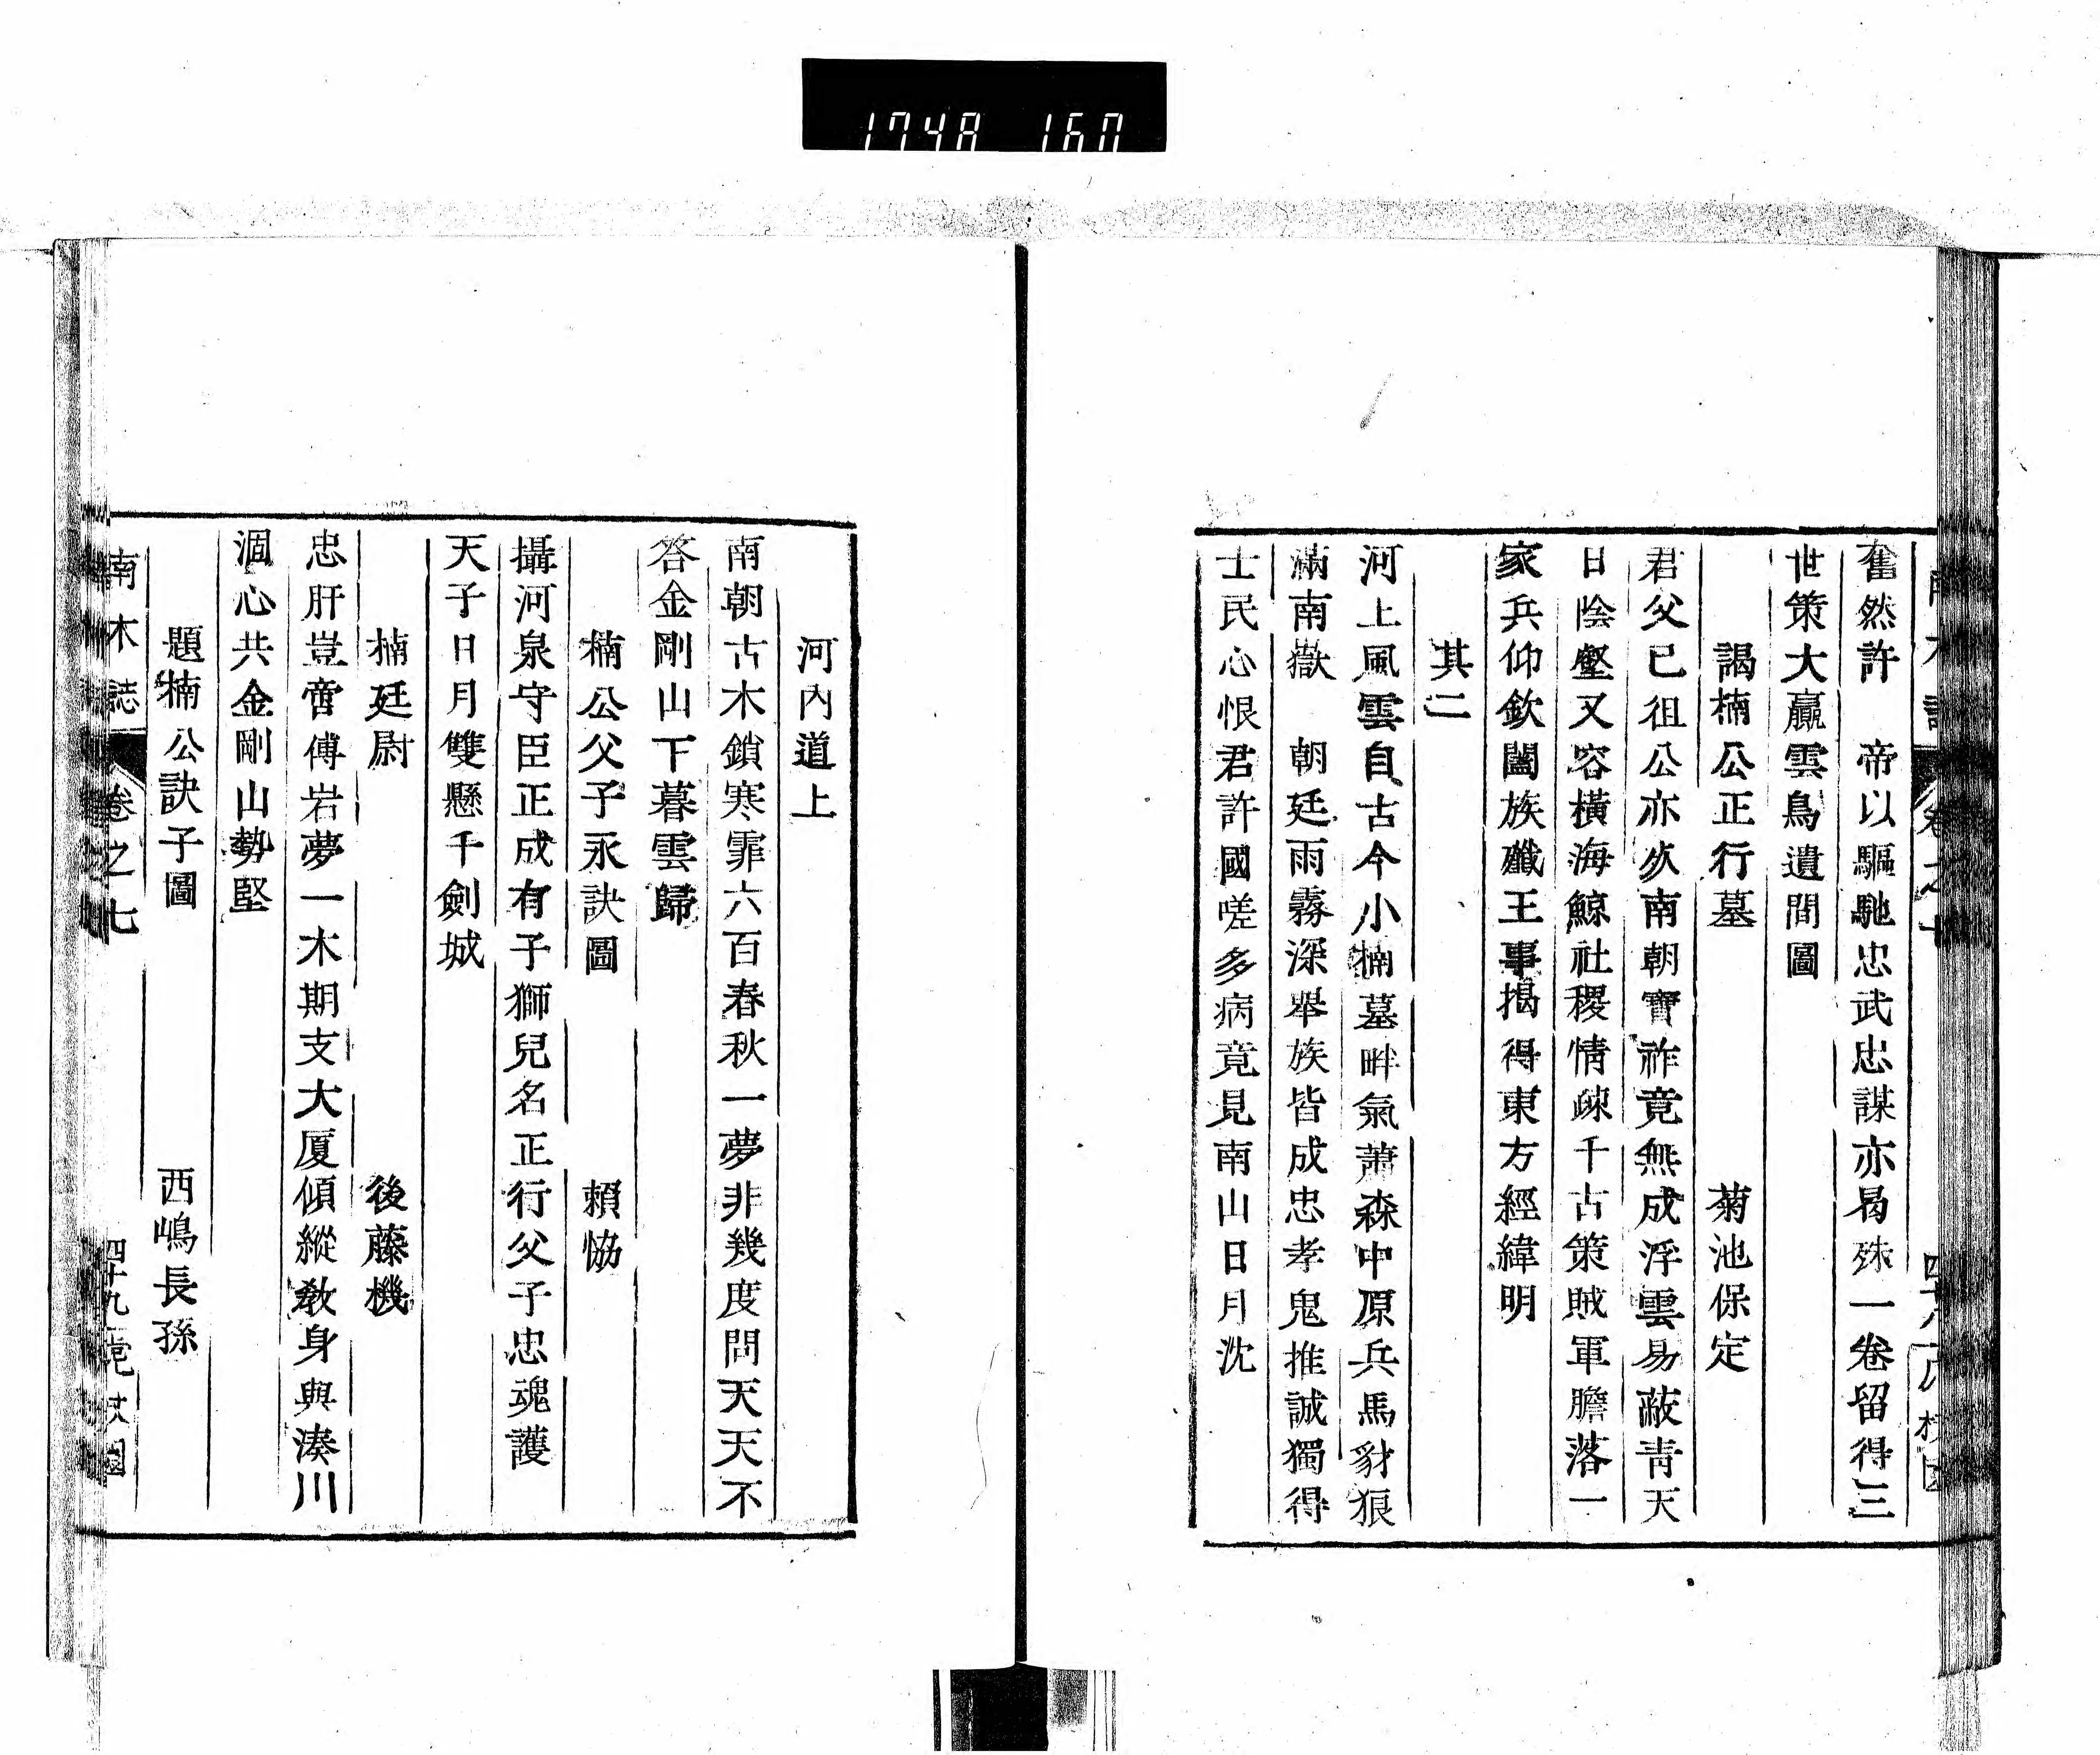 1748 160
奮然許　帝以驅馳忠武忠謀亦曷殊一卷留得三
世策大贏雲鳥遺間圖
謁楠公正行墓　菊池保定
君父已徂公亦亥南朝寶祚竟無成浮雲易蔽靑天
日陰壑又容橫海鯨社稷情疎千古策賊軍膽落一
家兵仰欽闔族殲王事揭得東方經緯明
其二
河上風雲自古今小楠墓畔氣蕭森中原兵馬豺狼
滿南嶽　朝廷雨霧深舉族皆成忠孝鬼推誠獨得
士民心恨君許國嗟多病竟見南山日月沈
河內道上
南朝古木鎖寒霏六百春秋一夢非幾度問天天不
答金剛山下暮雲歸
楠公父子永訣圖　賴恊
攝河泉守臣正成有子獅兒名正行父子忠魂護
天子日月雙懸千劍城
楠廷尉　後藤機
忠肝豈啻傅岩夢一木期支大厦傾縱敎身與湊川
涸心共金剛山勢堅
題楠公訣子圖　西嶋長孫
南木誌　卷之七　四十九